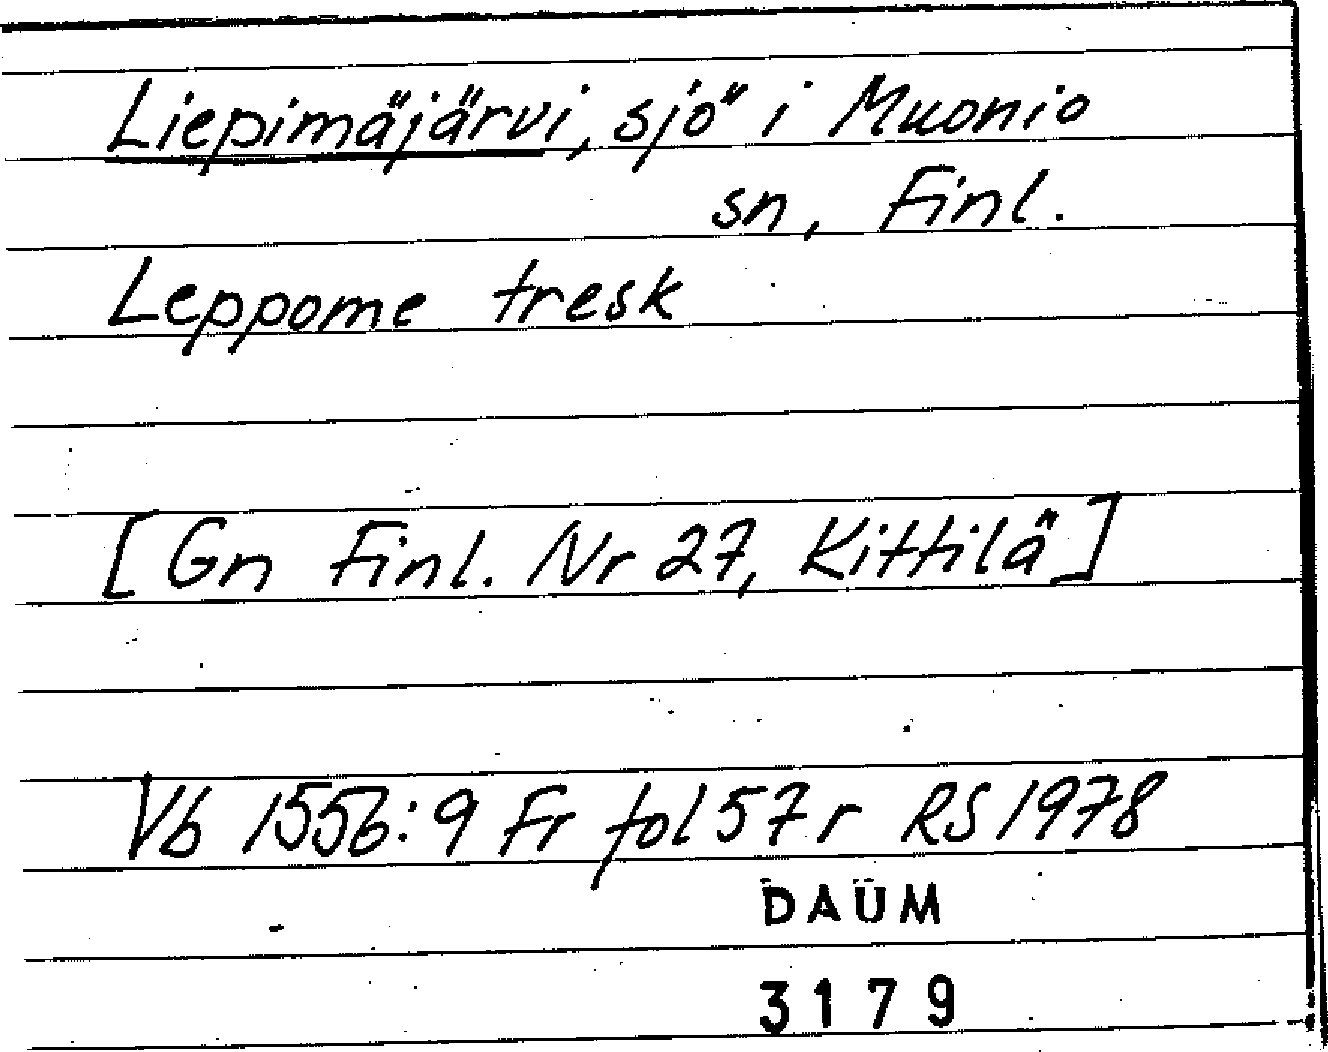 Liepimäjärvi, sjö i Muonio
sn, Finl.
Leppome tresk
[Gn Finl. Nr 27, Kittilä]
Vb 1556:9 Fr fol 57 r RS 1978
DAUM
3179